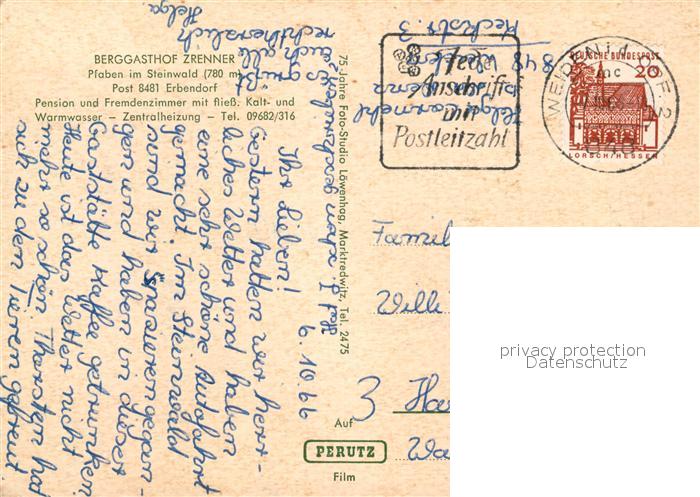 BERGGASTHOF ZRENNER
Pfaben im Steinwald (780 m)
Post 8481 Erbendorf
Pension und Fremdenzimmer mit fließ. Kalt- und
Warmwasser – Zentralheizung – Tel. 09682/316
75 Jahre Foto-Studio Löwenhag, Marktredwitz, Tel. 2475
6.10.66
Ihr Lieben!
Gestern hatten wir herr-
liches Wetter und haben
eine sehr schöne Autofahrt
gemacht. Im Steinwald
sind wir spazierengegan-
gen und haben in dieser
Gaststätte Kaffee getrunken.
Heute ist das Wetter nicht
mehr so schön. Thorsten hat
sich zu den Tieren gefreut
Es grüßt
euch alle
recht herzlich
Helga
848 Weiden
Stets
Anschrift
mit
Postleitzahl
WEIDEN i d OPF 2
DEUTSCHE BUNDESPOST
20
LORSCH/HESSEN
Famil
Willi
3 Ha
Auf
PERUTZ
Film
privacy protection
Datenschutz